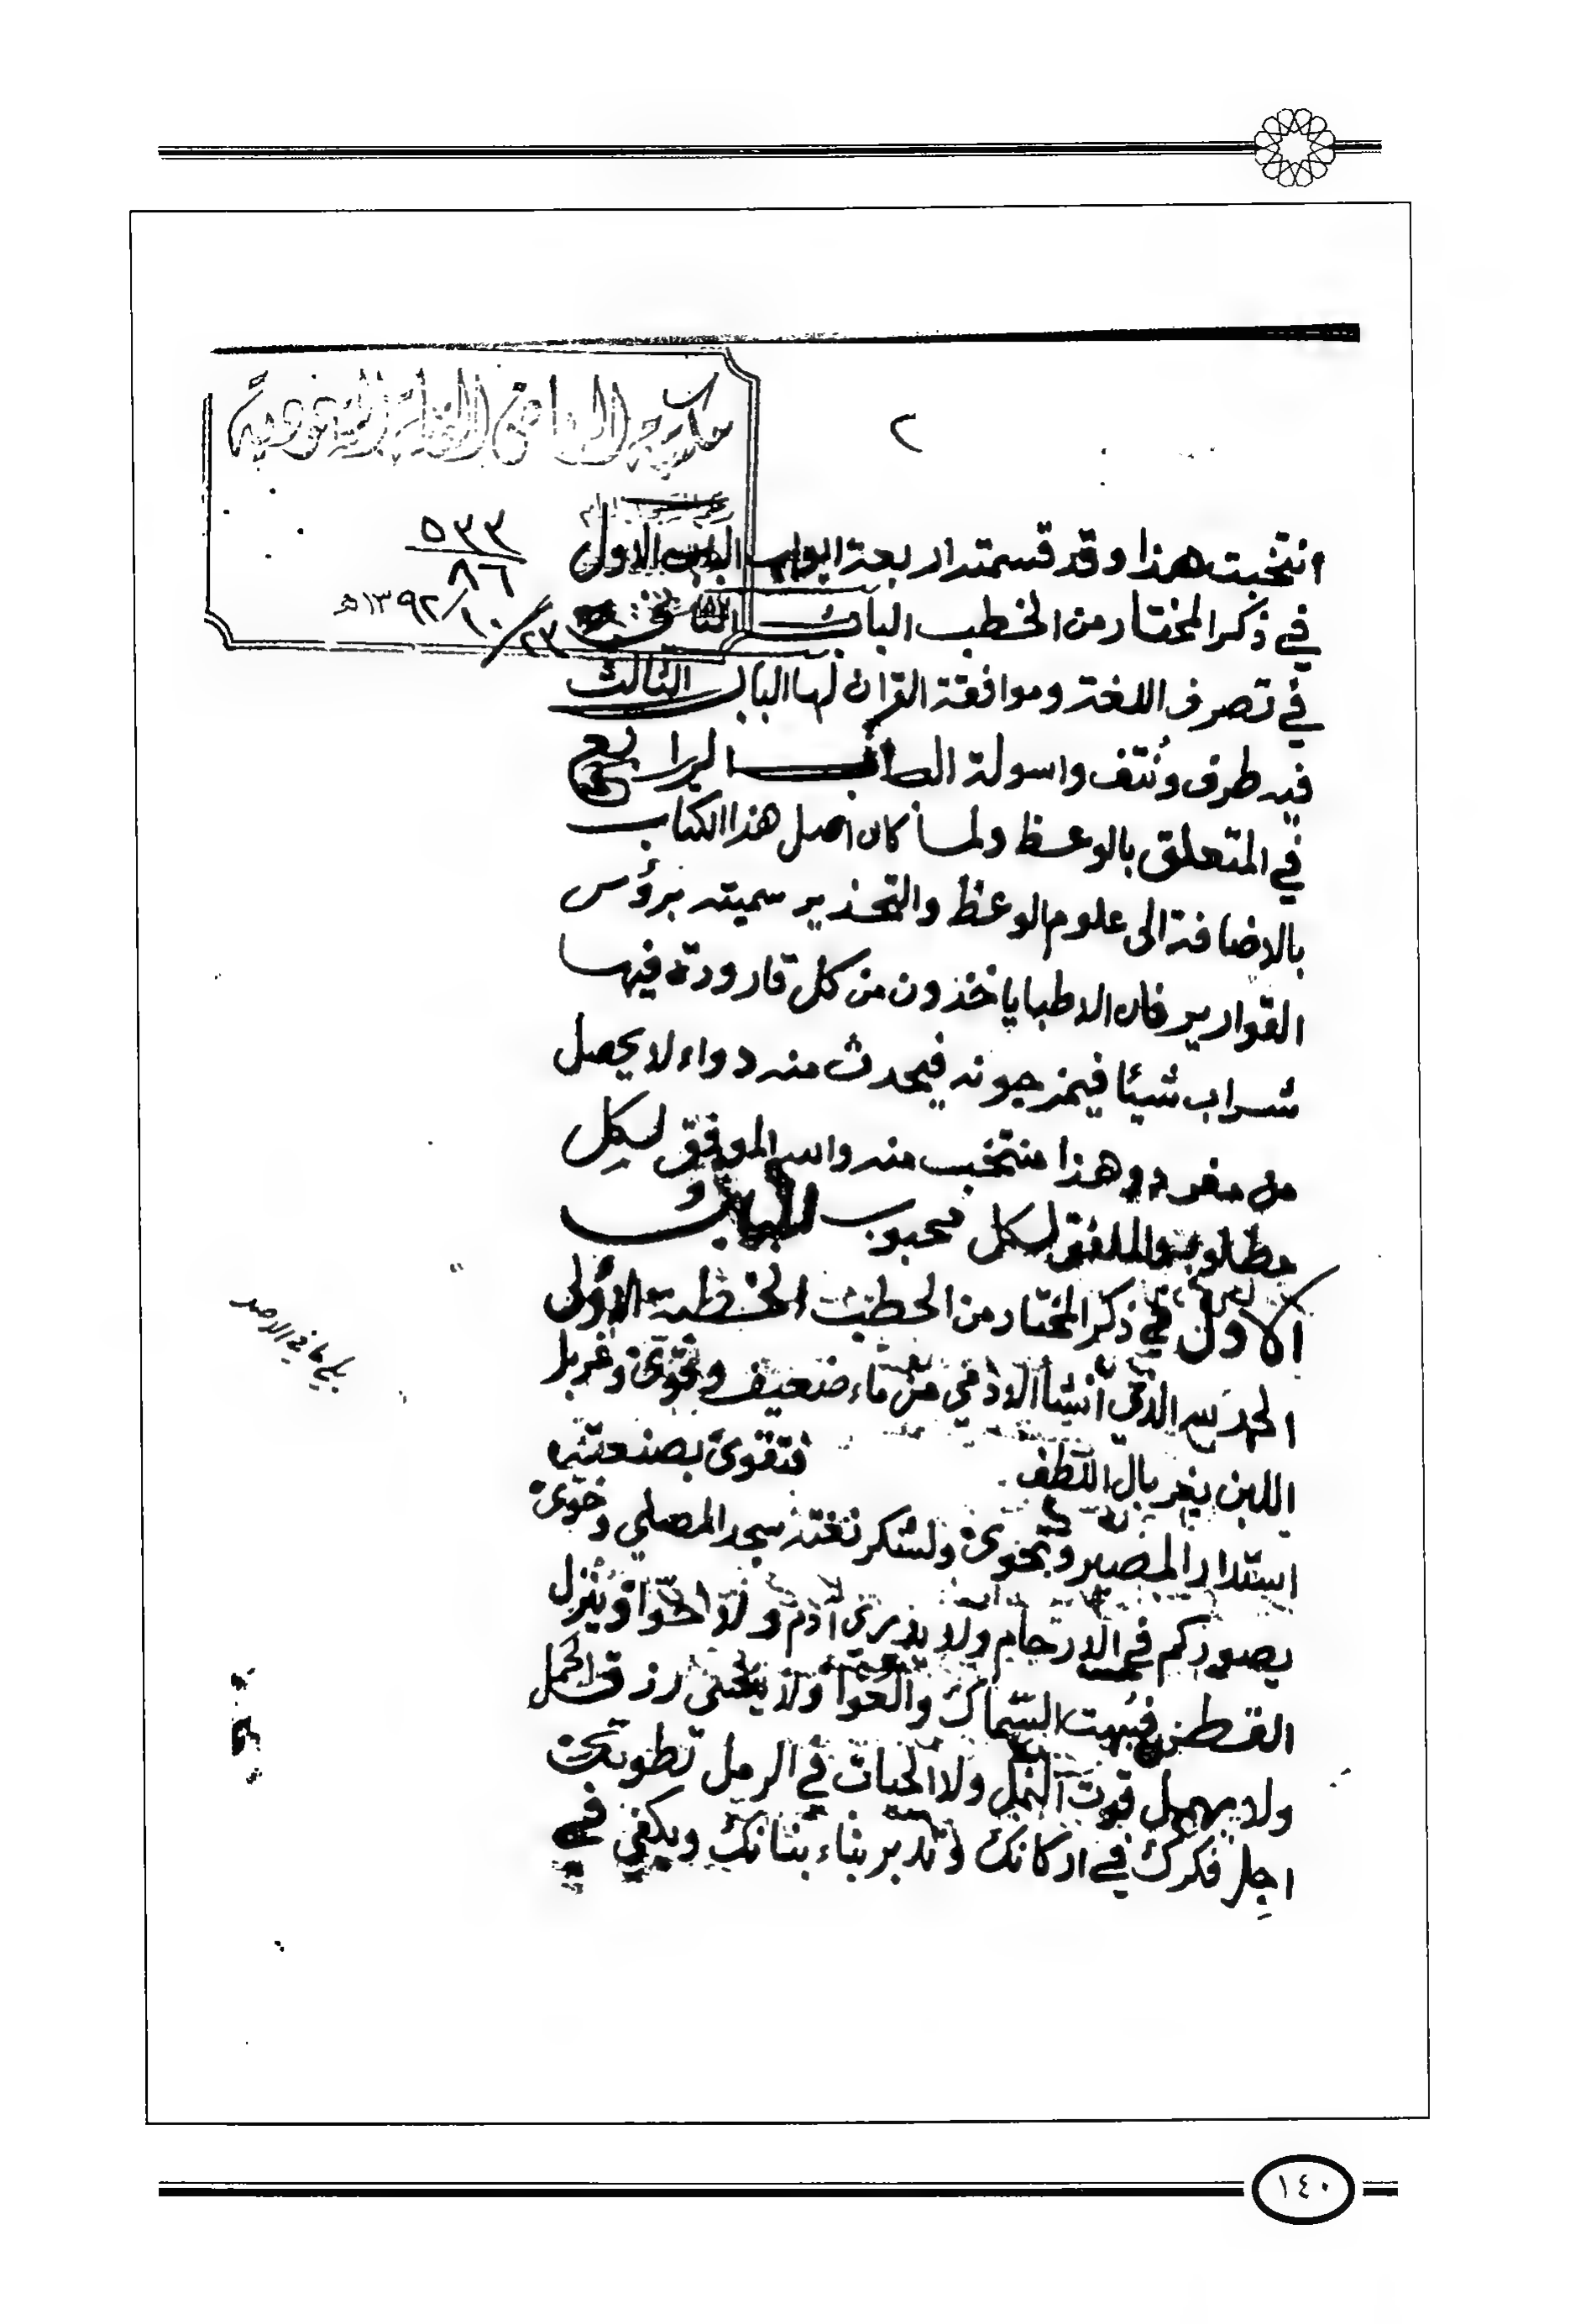 ٢
٥٣٣
٨٦
٢٣/١٠/١٣٩٢هـ
انتخبت هذا وقد قسمته اربعة ابواب الباب الاول
في ذكر المختار من الخطب الباب الثاني
في تصرف اللغة وموافقة القران لها الباب الثالث
فيه طرف ونُتف واسولة الباب الرابع
في المتعلق بالوعظ ولما كان اصل هذا الكتاب
بالاضافة الى علوم الوعظ والتحذير سميته برؤس
القوارير فان الاطبا ياخذون من كل قارورة فيها
شراب شيئا فيمزجونه فيحدث منه دواء لا يحصل
من مفرد وهذا منتخب منه والله الموفق لكل
مطلوب والملفق لكل محبوب الباب
الاول في ذكر المختار من الخطب الخطبة الاولى
الحمد لله الذي انشأ الادمي من ماء ضعيف وغربل
اللبن بغربال اللطف فتقوى بصنعته
استدار المصير وتحوى ولشكر نعته سجد المصلي وخوى
يصوركم في الارحام ولا يدري ادم ولا حوا وينزل
القطر فبهت السماك والعوا ولا ينسى رزق الحمل
ولا يهمل قوت النمل ولا الحيات في الرمل تطوت تحت
اجل فكرك في اركانك وتدبر بناء بنانك ويكفي في
١٤٠